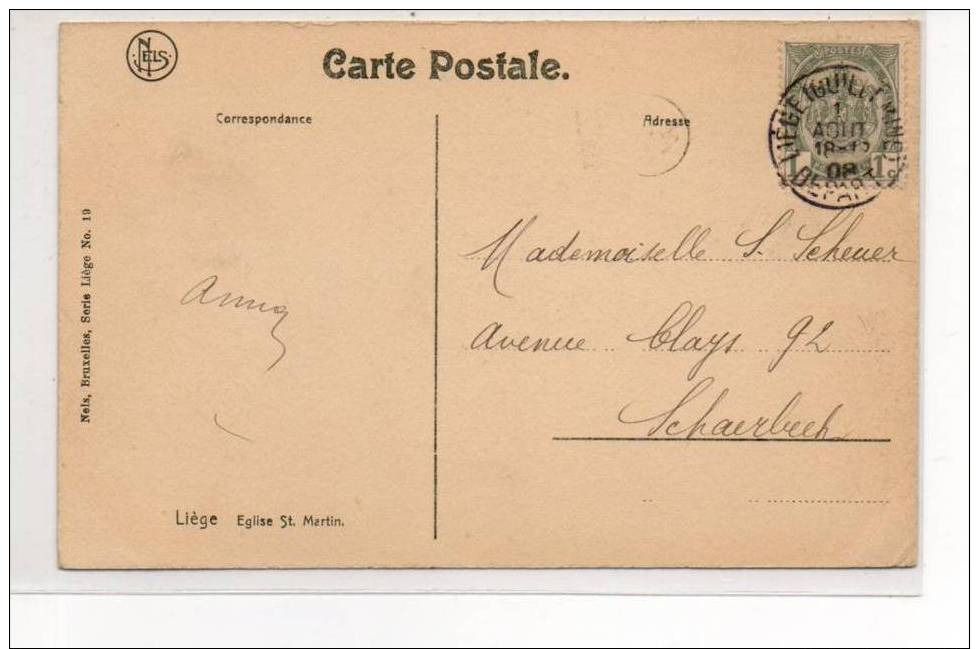 NELS
Carte Postale.
Correspondance
Adresse
POSTES
LIÈGE (GUILLEMINS)
1
AOUT
18-19
08
DEPART
1 1c
Mademoiselle S. Scheuer
Avenue Clays 92
Schaerbeek
Anna
Nels, Bruxelles, Serie Liège No. 19
Liège Eglise St. Martin.